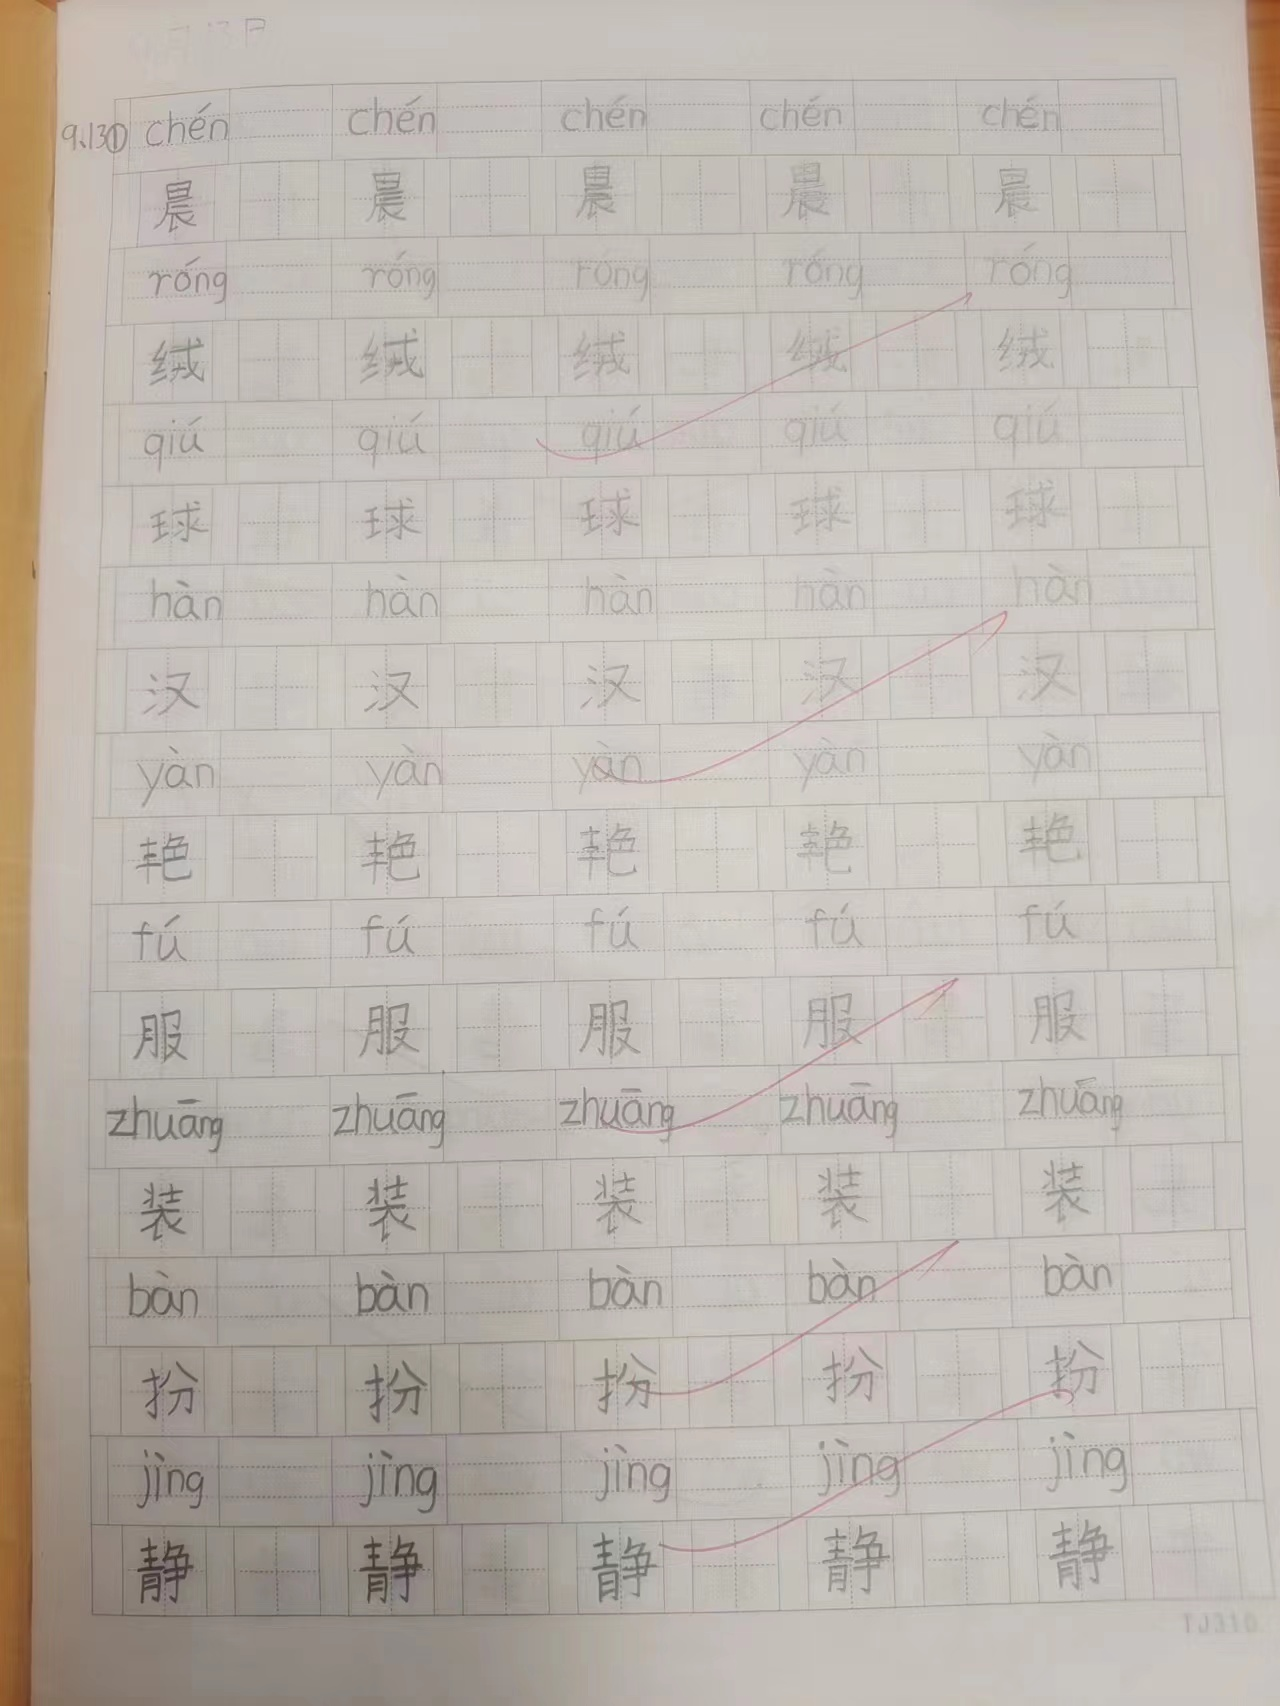 9.13① chén chén chén chén chén
晨 晨 晨 晨 晨
róng róng róng róng róng
绒 绒 绒 绒 绒
qiú qiú qiú qiú qiú
球 球 球 球 球
hàn hàn hàn hàn hàn
汉 汉 汉 汉 汉
yàn yàn yàn yàn yàn
艳 艳 艳 艳 艳
fú fú fú fú fú
服 服 服 服 服
zhuāng zhuāng zhuāng zhuāng zhuāng
装 装 装 装 装
bàn bàn bàn bàn bàn
扮 扮 扮 扮 扮
jìng jìng jìng jìng jìng
静 静 静 静 静